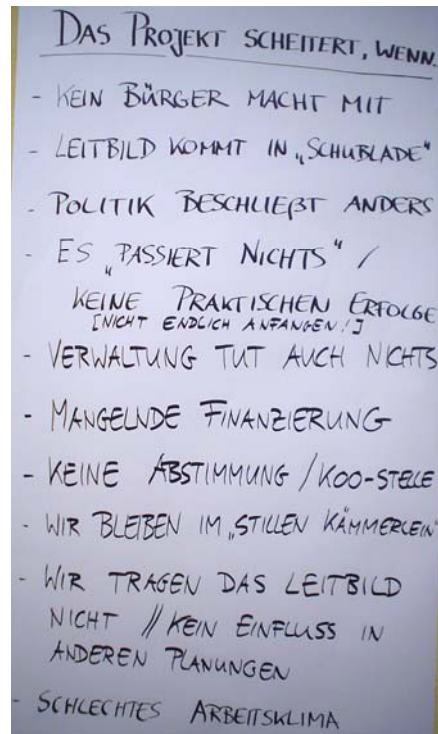 DAS PROJEKT SCHEITERT, WENN..
- KEIN BÜRGER MACHT MIT
- LEITBILD KOMMT IN „SCHUBLADE"
- POLITIK BESCHLIEßT ANDERS
- ES „PASSIERT NICHTS" /
KEINE PRAKTISCHEN ERFOLGE
[NICHT ENDLICH ANFANGEN!]
- VERWALTUNG TUT AUCH NICHTS
- MANGELNDE FINANZIERUNG
- KEINE ABSTIMMUNG / KOO-STELLE
- WIR BLEIBEN IM „STILLEN KÄMMERLEIN"
- WIR TRAGEN DAS LEITBILD
NICHT // KEIN EINFLUSS IN
ANDEREN PLANUNGEN
- SCHLECHTES ARBEITSKLIMA